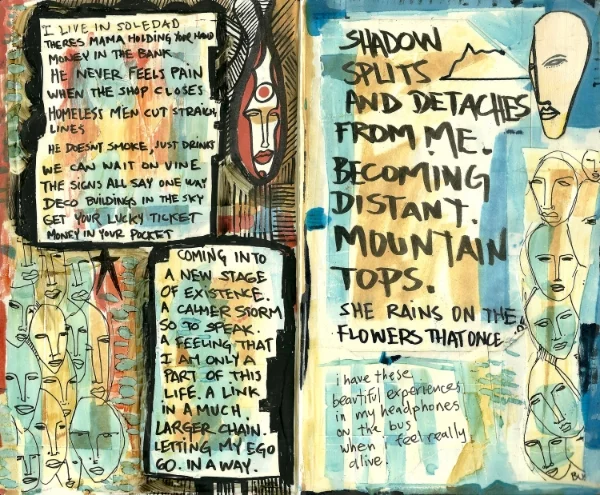 I LIVE IN SOLEDAD
THERES MAMA HOLDING YOUR HAND
MONEY IN THE BANK
HE NEVER FEELS PAIN
WHEN THE SHOP CLOSES
HOMELESS MEN CUT STRAIGH
LINES
HE DOESNT SMOKE, JUST DRINKS
WE CAN WAIT ON VINE
THE SIGNS ALL SAY ONE WAY
DECO BUILDINGS IN THE SKY
GET YOUR LUCKY TICKET
MONEY IN YOUR POCKET
COMING INTO
A NEW STAGE
OF EXISTENCE.
A CALMER STORM
SO TO SPEAK.
A FEELING THAT
I AM ONLY A
PART OF THIS
LIFE. A LINK
IN A MUCH
LARGER CHAIN.
LETTING MY EGO
GO. IN A WAY.
SHADOW
SPLITS
AND DETACHES
FROM ME.
BECOMING
DISTANT.
MOUNTAIN
TOPS.
SHE RAINS ON THE
FLOWERS THAT ONCE
i have these
beautiful experiences
in my headphones
on the bus
when I feel really
alive.